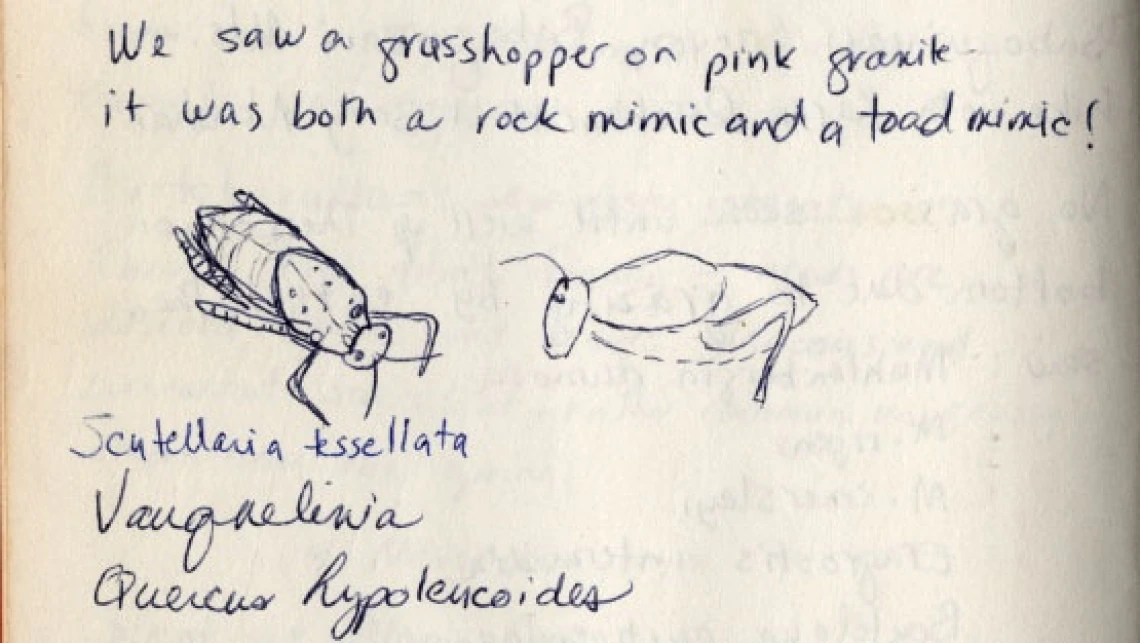 We saw a grasshopper on pink granite -
it was both a rock mimic and a toad mimic!
Scutellaria tessellata
Vauquelinia
Quercus hypoleucoides